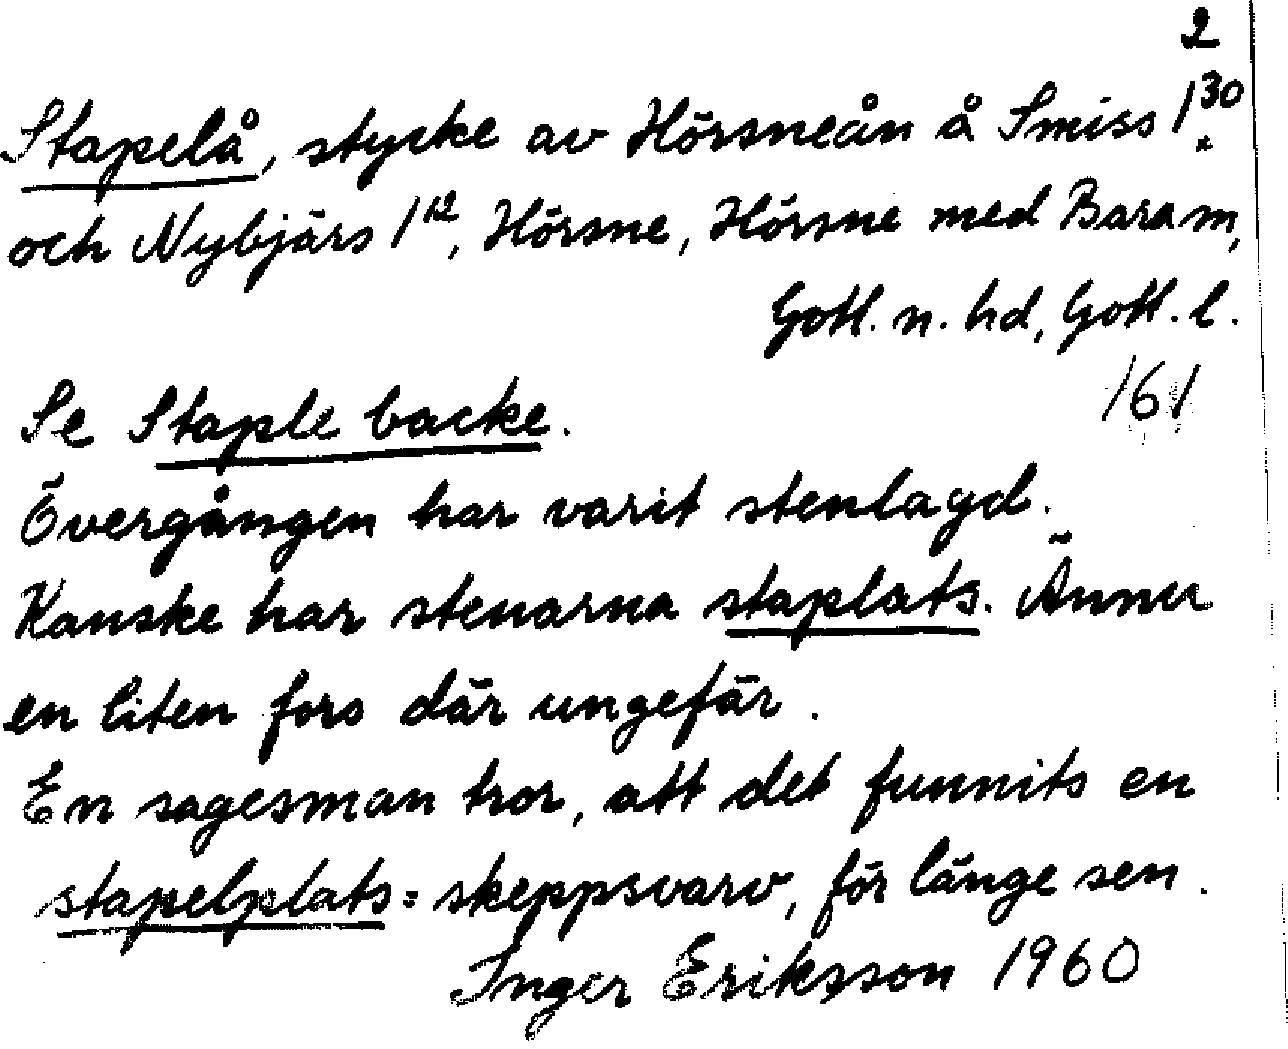 2
Stapelå, stycke av Hörsneån å Smiss 1³⁰
och Nybjärs 1¹², Hörsne, Hörsne med Bara sn,
Gotl. n. hd, Gotl. l.
161
Se Staple backe.
Övergången har varit stenlagd.
Kanske har stenarna staplats. Ännu
en liten fors där ungefär.
En sagesman tror, att det funnits en
stapelplats = skeppsvarv, för länge sen.
Inger Eriksson 1960